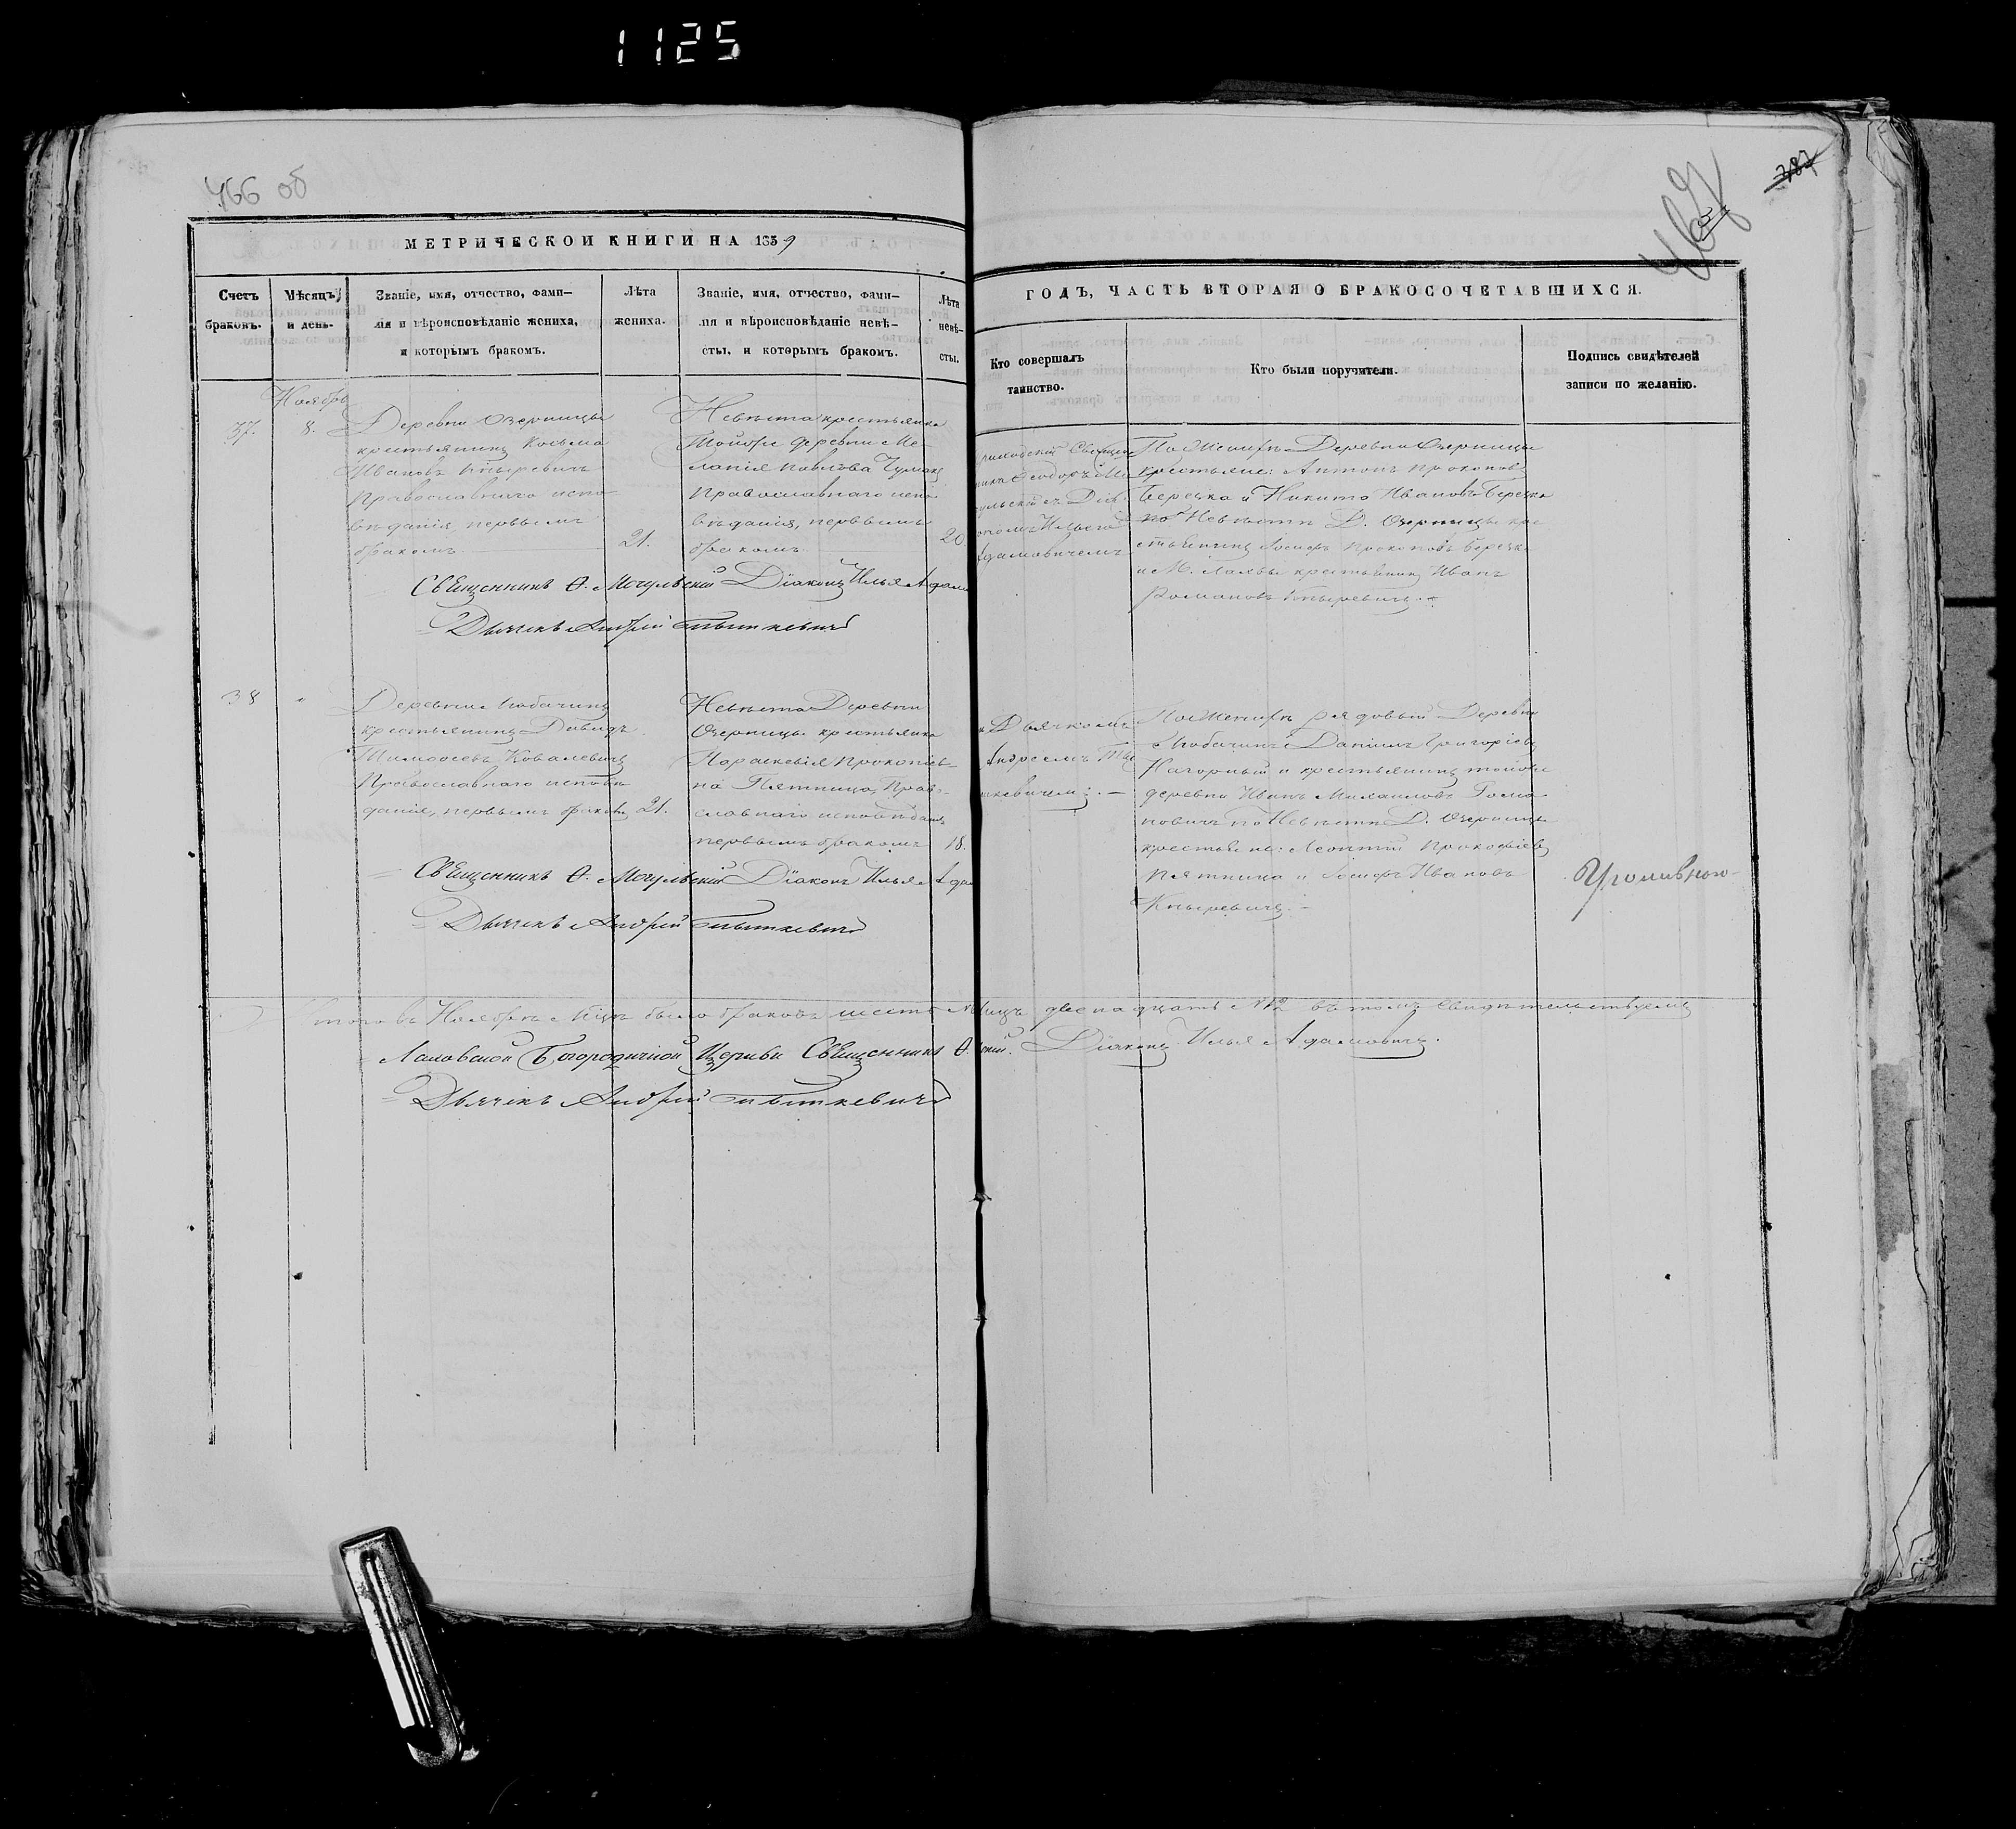 1125
466 об
467
34
787
МЕТРИЧЕСКОЙ КНИГИ НА 1859
ГОДЪ, ЧАСТЬ ВТОРАЯ О БРАКОСОЧЕТАВШИХСЯ.
Счетъ
браковъ.
Мѣсяцъ
и день.
Званіе, имя, отчество, фами-
лія и вѣроисповѣданіе жениха,
и которымъ бракомъ.
Лѣта
жениха.
Званіе, имя, отчество, фами-
лія и вѣроисповѣданіе невѣ-
сты, и которымъ бракомъ.
Лѣта
невѣ-
сты.
Кто совершалъ
таинство.
Кто были поручители.
Подпись свидѣтелей
записи по желанію.
Ноябрь
37.
8.
Деревни Озерницы
крестьянинъ Косьма
Ивановъ Кныревичъ
Православнаго испо-
вѣданія, первымъ
бракомъ
21.
Невѣста крестьянка
тойже деревни Ме-
ланія Павлова Чумакъ
Православнаго испо-
вѣданія, первымъ
бракомъ
20.
Приходскій Священ
никъ Ѳеодоръ Мо
гульскій съ Діа
кономъ Ильею
Адамовичемъ
По Женихѣ Деревни Озерницы
крестьяне: Антонъ Прокоповъ
Березка и Никита Ивановъ Березка
по Невѣстѣ Д. Озерницы кре
стьянинъ Іосифъ Прокоповъ Березка
и М. Лахвы крестьянинъ Иванъ
Романовъ Кныревичъ.
Священникъ Ѳ. Могульскій Діаконъ Илья Адам
Дьячекъ Андрей
38
"
Деревни Любачинъ
крестьянинъ Давидъ
Тимофеевъ Ковалевичъ
Православнаго исповѣ
данія, первымъ бракомъ
21.
Невѣста Деревни
Озерницы крестьянка
Параскевія Прокопіев
на Пятница, Право-
славнаго исповѣданія
первымъ бракомъ
18.
и Дьячкомъ
Андреемъ
кевичемъ. —
По Женихѣ рядовый Деревни
Любачинъ Даніилъ Григоріевъ
Нагорный и крестьянинъ тойже
деревни Иванъ Михаиловъ Рома
новичъ по Невѣстѣ Д. Озерницы
крестьяне: Леонтій Прокофіевъ
Пятница и Іосифъ Ивановъ
Кныревичъ. —
Священникъ Ѳ. Могульскій Діаконъ Илья Ада
Дьячекъ Андрей
Итого въ Ноябрѣ М-цѣ было браковъ шесть лицъ двенадцать №12 въ томъ свидѣтельствуемъ
Богородичной Церкви Священникъ Ѳ. скій. Діаконъ Илья Адамовичъ.
Дьячекъ Андрей